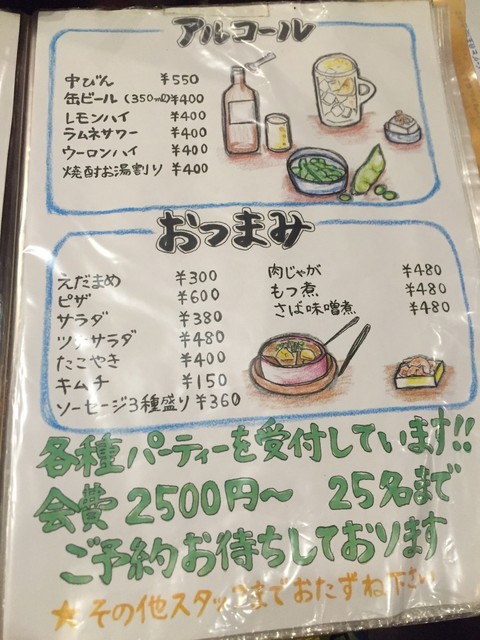 アルコール
中びん ¥550
缶ビール (350ml) ¥400
レモンハイ ¥400
ラムネサワー ¥400
ウーロンハイ ¥400
焼酎お湯割り ¥400
おつまみ
えだまめ ¥300
ピザ ¥600
サラダ ¥380
ツナサラダ ¥480
たこやき ¥400
キムチ ¥150
ソーセージ3種盛り ¥360
肉じゃが ¥480
もつ煮 ¥480
さば味噌煮 ¥480
各種パーティーを受付しています!!
会費2500円〜 25名まで
ご予約お待ちしております
★その他スタッフまでおたずね下さい